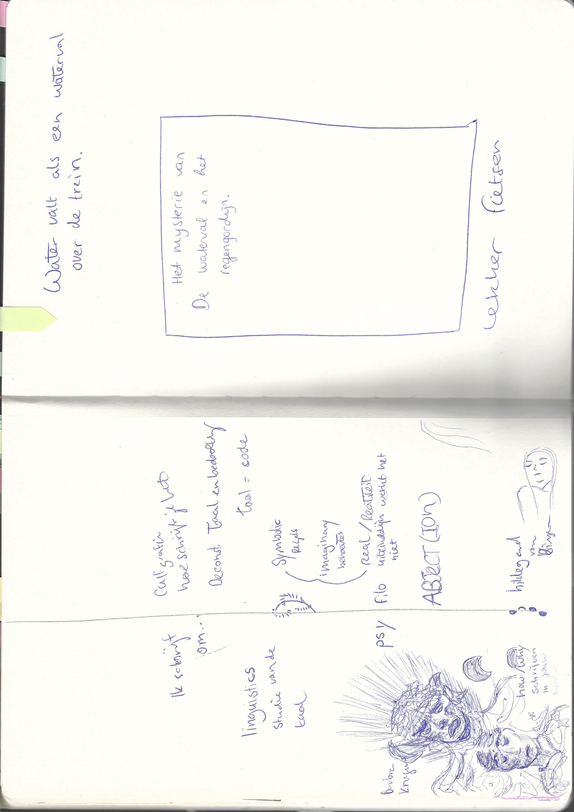 Water valt als een waterval
over de trein.
Het mysterie van
De waterval en het
regengordijn.
lekker fietsen
Ik schrijf
om...
linguistics
studie van de
taal
psy
how/why
schrijven
in
hoe schrijf je het
Deconst. Taal en
taal = code
Symbolic
imaginary
real / realiteit
Filo uiteindelijk werkt het
niet
ABJECT(ION)
hildegard
von
Bingen